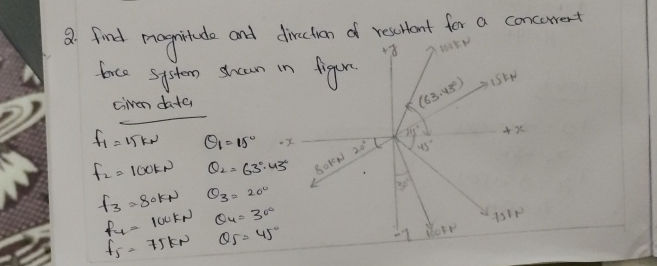 2. find magnitude and direction of resultant for a concurrent
force system shown in figure.
Given data
f1 = 15kN θ1 = 15°
f2 = 100kN θ2 = 63°.43°
f3 = 80kN θ3 = 20°
f4 = 100kN θ4 = 30°
f5 = 75kN θ5 = 45°
+y
100kN
15kN
(63.43°)
-x
+x
45°
20°
80kN
30°
-y
100kN
75kN